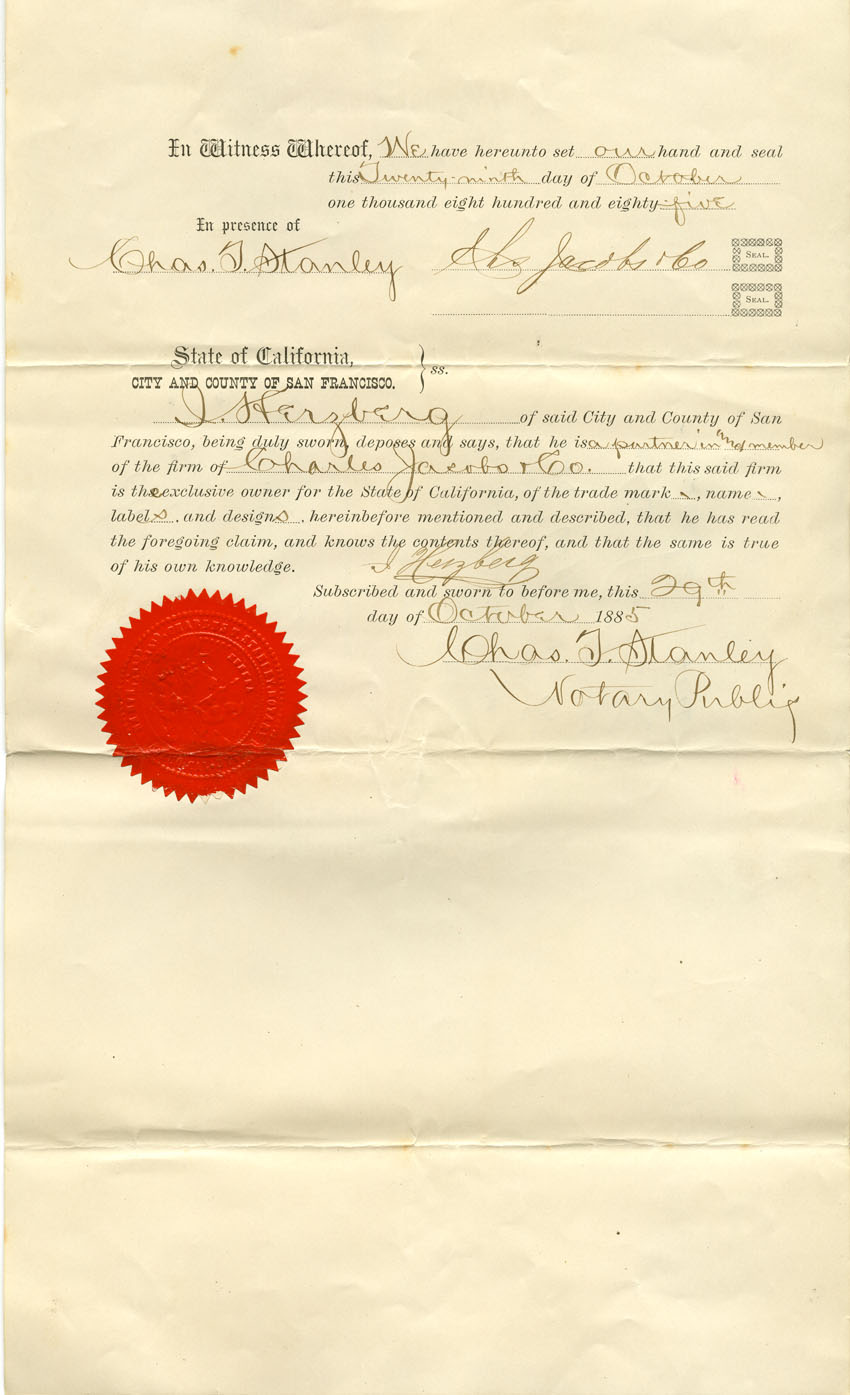 In Witness Whereof, We have hereunto set our hand and seal
this Twenty-ninth day of October
one thousand eight hundred and eighty-five
In presence of
Chas. T. Stanley
Chs Jacobs & Co
SEAL.
SEAL.
State of California,
CITY AND COUNTY OF SAN FRANCISCO.
} ss.
I. Herzberg of said City and County of San
Francisco, being duly sworn, deposes and says, that he is a partner in and member
of the firm of Charles Jacobs & Co. that this said firm
is the exclusive owner for the State of California, of the trade mark , name ,
labels , and designs , hereinbefore mentioned and described, that he has read
the foregoing claim, and knows the contents thereof, and that the same is true
of his own knowledge. I. Herzberg
Subscribed and sworn to before me, this 29th
day of October 1885
Chas. T. Stanley
Notary Public